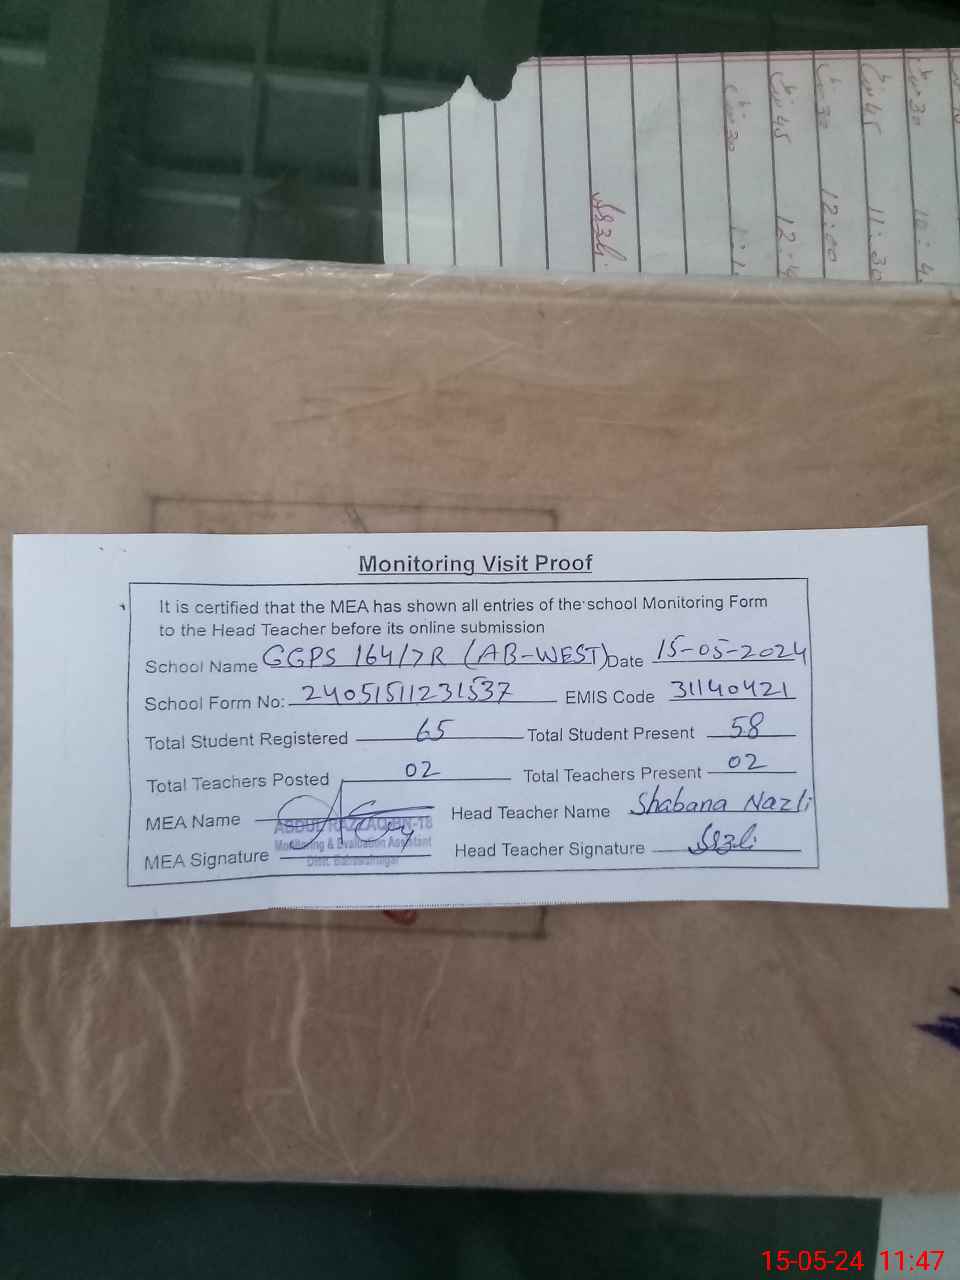 Monitoring Visit Proof
It is certified that the MEA has shown all entries of the school Monitoring Form
to the Head Teacher before its online submission
School Name GGPS 164/7R (AB-WEST) Date 15-05-2024
School Form No: 24051511231537 EMIS Code 31140421
Total Student Registered 65 Total Student Present 58
Total Teachers Posted 02 Total Teachers Present 02
MEA Name Head Teacher Name Shabana Nazli
ABDUL RAZZAQ BN-18
Monitoring & Evaluation Assistant
Distt. Bahawalnagar
MEA Signature Head Teacher Signature
12:00
11:30
15-05-24 11:47